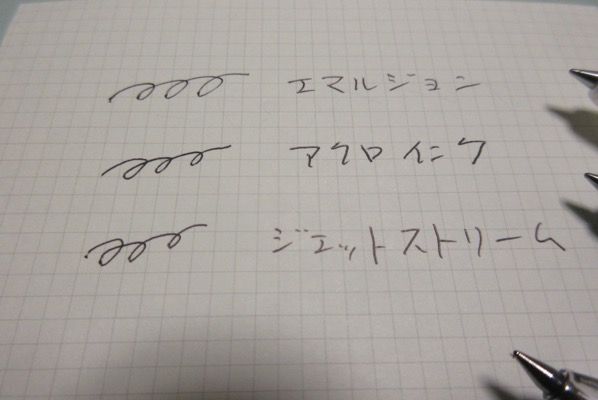 エマルジョン
アクロインク
ジェットストリーム